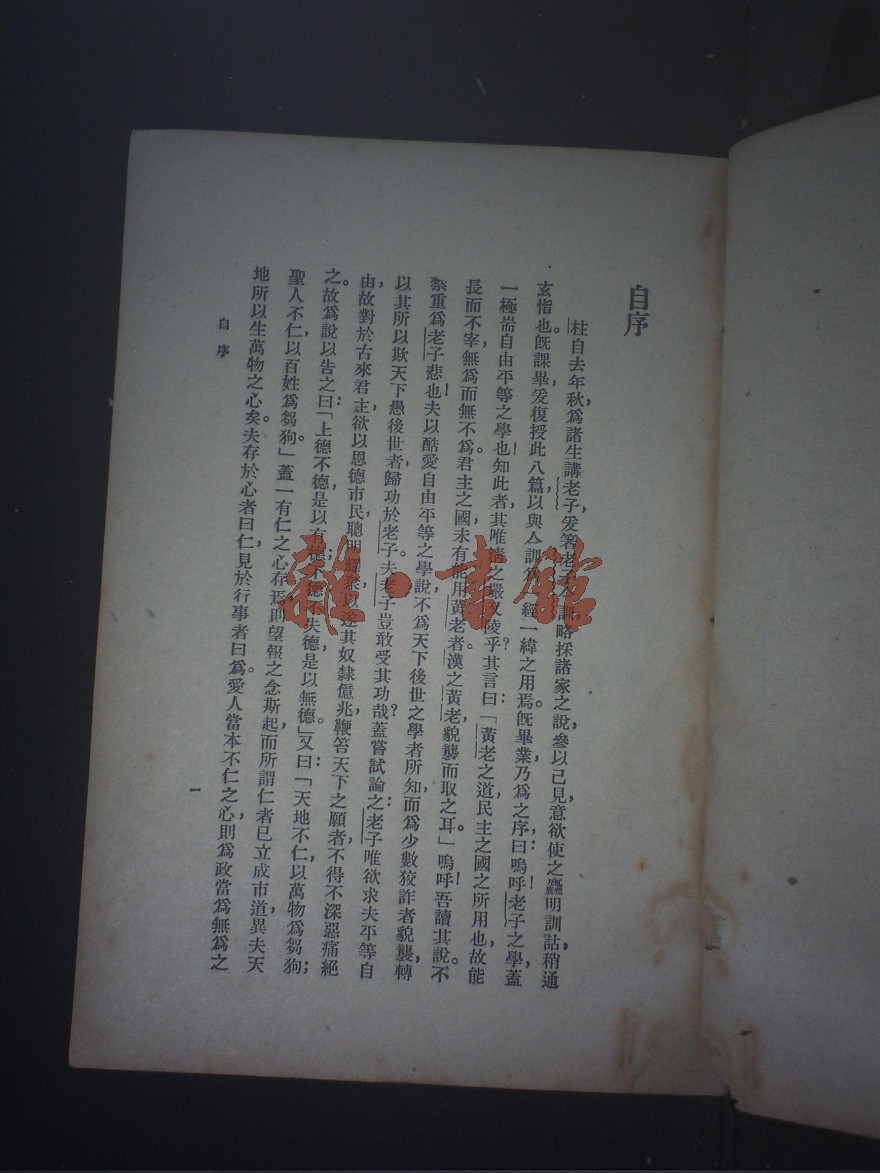 自序
柱自去年秋，爲諸生講老子，爰箸老子八訓，略採諸家之說，參以己見，意欲使之麤明訓詁，稍通
玄恉也。旣課畢，爰復授此八篇，以與八訓爲一經一緯之用焉。旣畢業，乃爲之序曰：嗚呼！老子之學，蓋
一極耑自由平等之學也！知此者，其唯淸之嚴又陵乎？其言曰：「黃老之道，民主之國之所用也，故能
長而不宰，無爲而無不爲。君主之國，未有能用黃老者。漢之黃老，貌襲而取之耳。」嗚呼！吾讀其說。不
禁重爲老子悲也！夫以酷愛自由平等之學說，不爲天下後世之學者所知，而爲少數狡詐者貌襲，轉
以其所以欺天下愚後世者，歸功於老子。夫老子豈敢受其功哉？蓋嘗試論之：老子唯欲求夫平等自
由，故對於古來君主，欲以恩德市民，聰明 以遂其奴隸億兆，鞭笞天下之願者，不得不深惡痛絕
之。故爲說以告之曰：「上德不德，是以有德；下德不失德，是以無德。」又曰：「天地不仁，以萬物爲芻狗；
聖人不仁，以百姓爲芻狗。」蓋一有仁之心存焉，則望報之念斯起，而所謂仁者，已立成市道，異夫天
地所以生萬物之心矣。夫存於心者曰仁，見於行事者曰爲。愛人當本不仁之心，則爲政當爲無爲之
自序
一
雜·書館